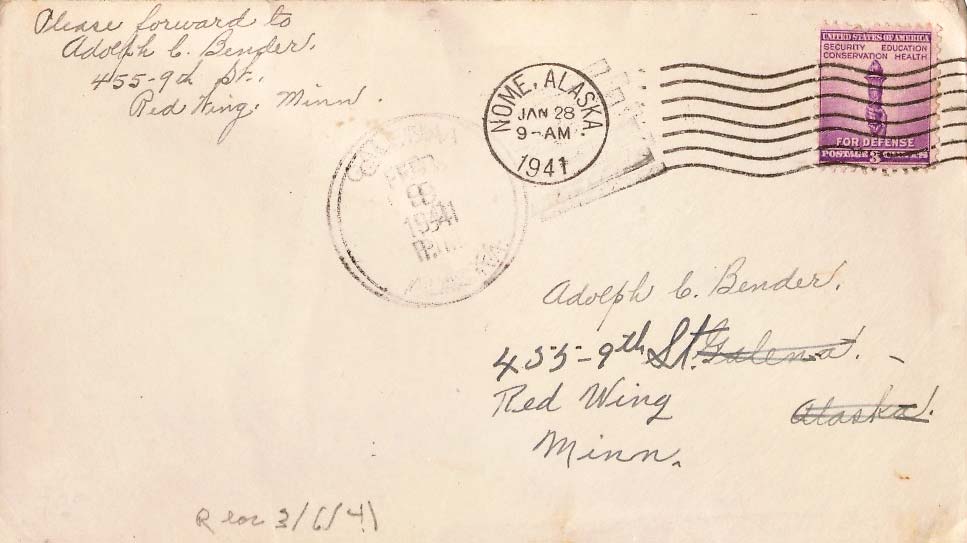 Please forward to
Adolph C. Bender.
455-9th St.,
Red Wing, Minn.
NOME, ALASKA.
JAN 28
9-AM
1941
UNITED STATES OF AMERICA
SECURITY EDUCATION
CONSERVATION HEALTH
FOR DEFENSE
POSTAGE 3 CENTS
1941
Adolph C. Bender,
455-9th St. Galena.
Red Wing Alaska.
Minn.
3/6/41